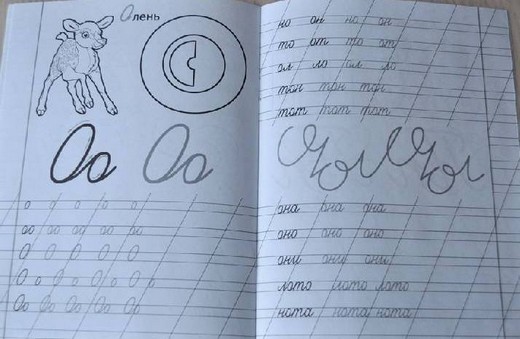 Олень
Оо Оо
о о о о о
оо оо оо оо оо
О О О О О О
О о О о О о О о
Оо Оо Оо Оо Оо
но он но он
то от то от
ол ло ол ло
тон тон тон
тот тот тот
она она она
оно оно оно
они они они
лото лото лото
нота нота нота